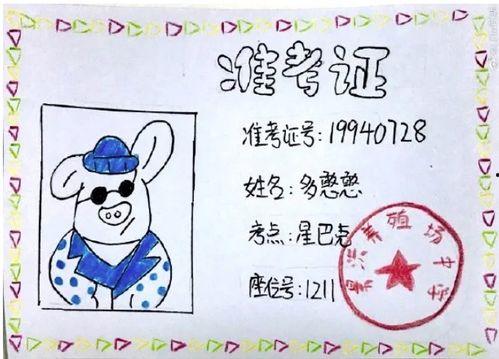 准考证
准考证号:19940728
姓名:多憨憨
考点:星巴克
座位号:1211
养殖场中学